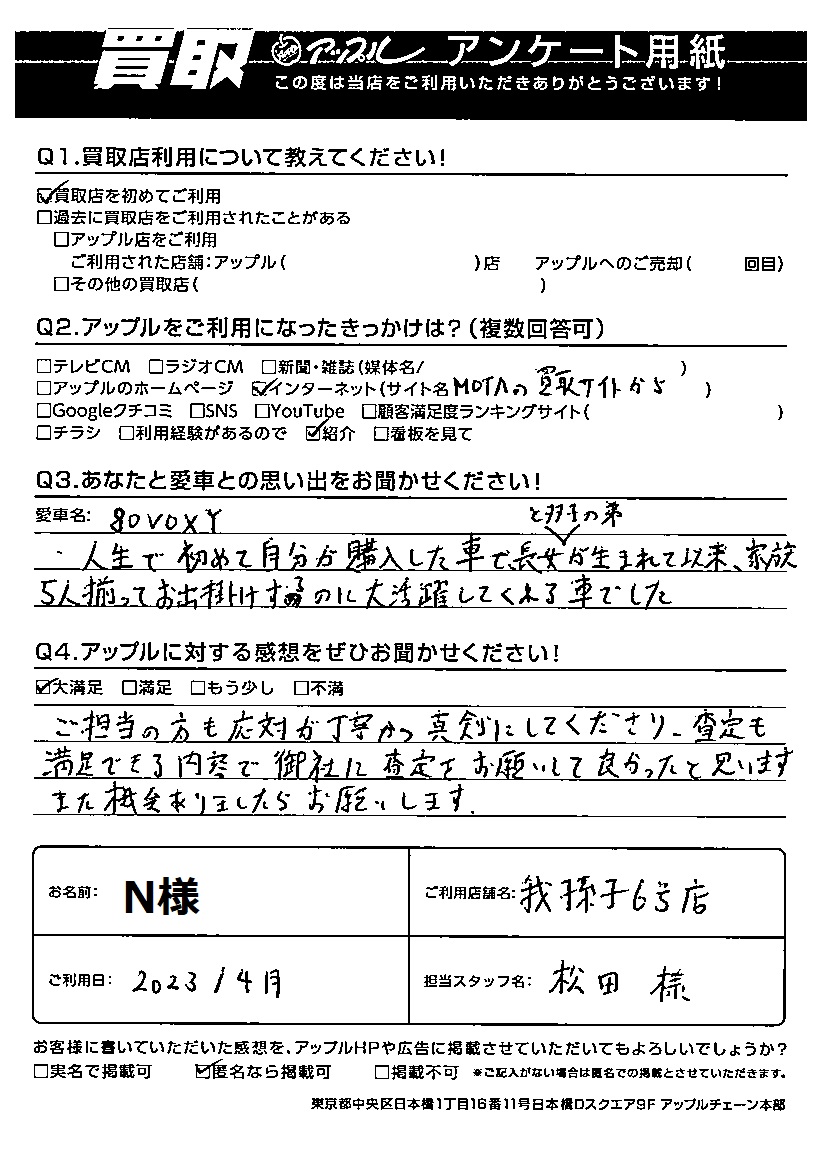 買取 アップル アンケート用紙
この度は当店をご利用いただきありがとうございます!
Q1.買取店利用について教えてください!
☑買取店を初めてご利用
□過去に買取店をご利用されたことがある
□アップル店をご利用
ご利用された店舗:アップル( )店 アップルへのご売却( 回目)
□その他の買取店( )
Q2.アップルをご利用になったきっかけは?(複数回答可)
□テレビCM □ラジオCM □新聞・雑誌(媒体名/ )
□アップルのホームページ ☑インターネット(サイト名 MOTAの買取サイトから )
□Googleクチコミ □SNS □YouTube □顧客満足度ランキングサイト( )
□チラシ □利用経験があるので ☑紹介 □看板を見て
Q3.あなたと愛車との思い出をお聞かせください!
愛車名: 80VOXY
と双子の弟
・人生で初めて自分が購入した車で、長女が生まれて以来、家族
5人揃ってお出掛けするのに大活躍してくれる車でした
Q4.アップルに対する感想をぜひお聞かせください!
☑大満足 □満足 □もう少し □不満
ご担当の方も応対が丁寧かつ真剣にしてくださり、査定も
満足できる内容で御社に査定をお願いして良かったと思います
また機会ありましたらお願いします.
お名前: N様 ご利用店舗名: 我孫子6号店
ご利用日: 2023/4月 担当スタッフ名: 松田 様
お客様に書いていただいた感想を、アップルHPや広告に掲載させていただいてもよろしいでしょうか?
□実名で掲載可 ☑匿名なら掲載可 □掲載不可 ※ご記入がない場合は匿名での掲載とさせていただきます。
東京都中央区日本橋1丁目16番11号日本橋Dスクエア9F アップルチェーン本部